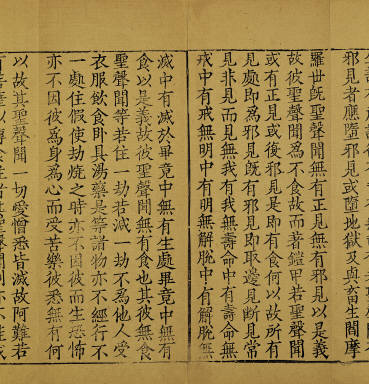 邪見者應墮邪見或墮地獄及與畜生閻摩
羅世既聖聲聞無有正見無有邪見以是義
故彼聖聲聞為不食故而著鎧甲若聖聲聞
或有正見或後邪見是即有食何以故所有
見處即為邪見既有邪見即取邊見斷見常
見非見而見無我有我無壽命中有壽命無
戒中有戒無明中有明無解脫中有解脫無
滅中有滅於畢竟中無有生處畢竟中無有
食以是義故彼聖聲聞無有食也其彼無食
聖聲聞等若住一劫若減一劫不為他人受
衣服飲食卧具湯藥是等諸物亦不經行不
一處住假使劫燒之時亦不因彼而生恐怖
亦不因彼為身為心而受苦樂彼悉無有何
以故其聖聲聞一切愛憎悉皆滅故阿難若